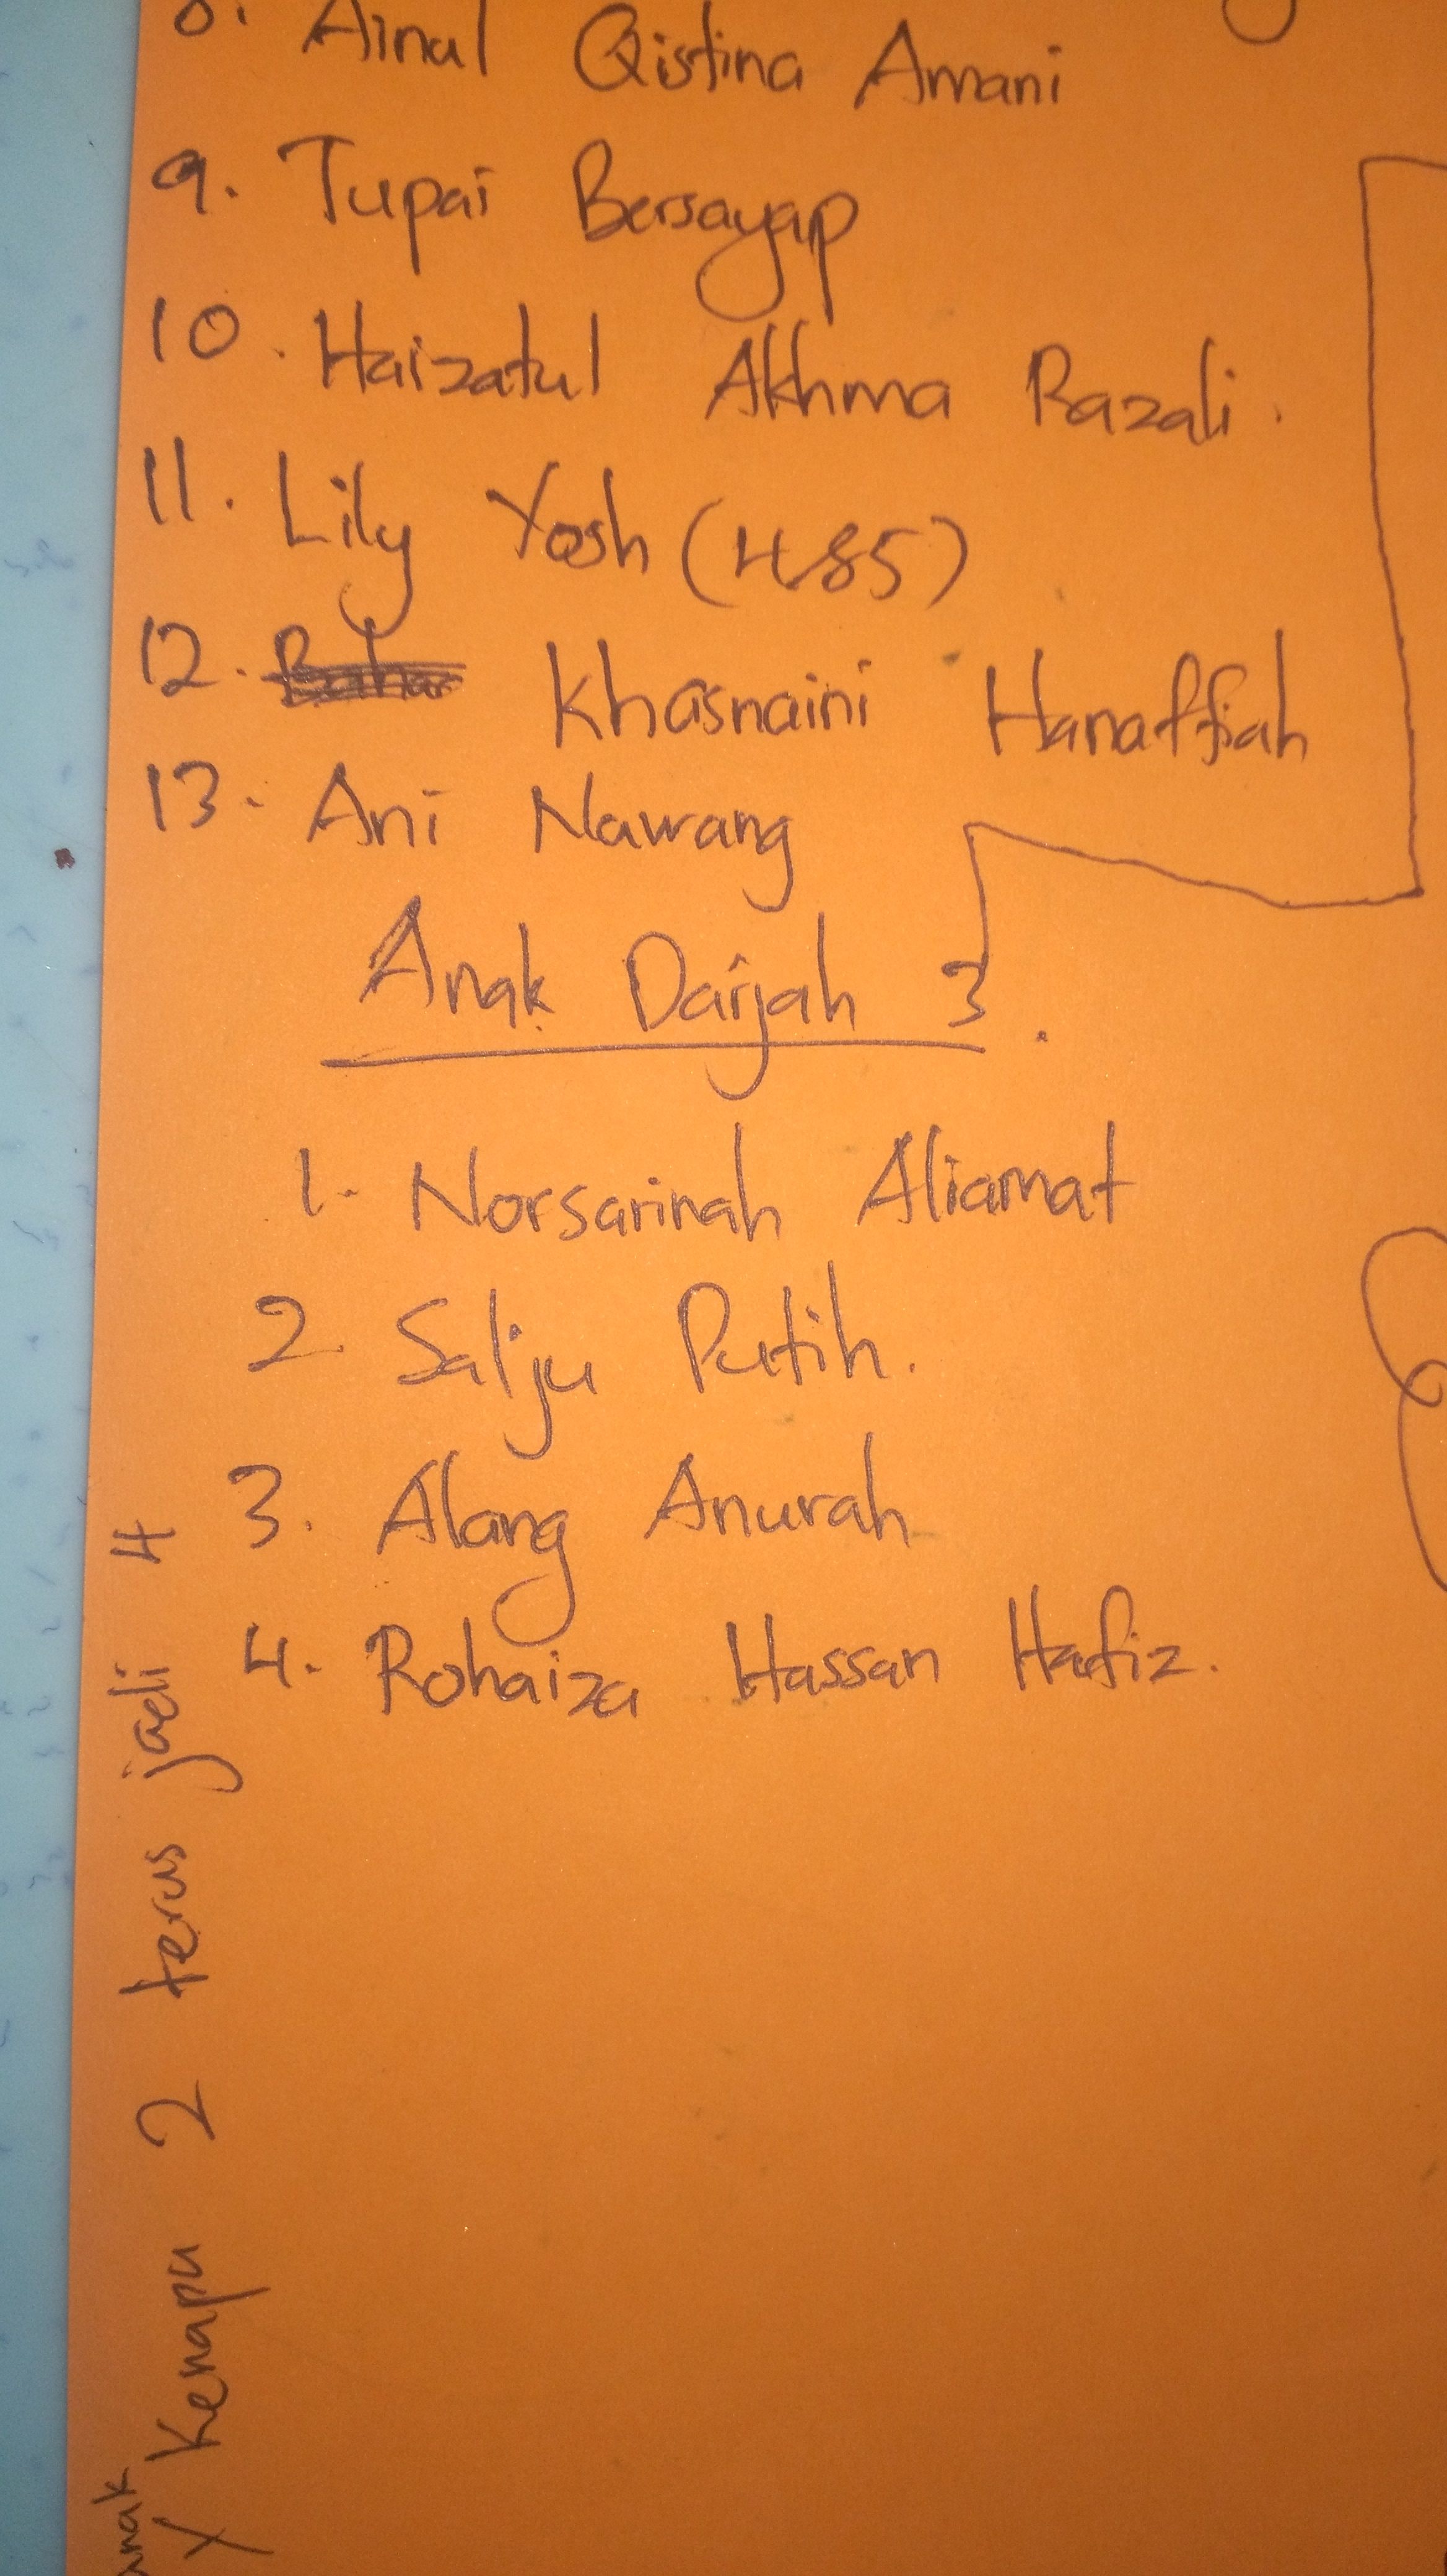 8. Ainul Qistina Amani
9. Tupai Bersayap
10. Haizatul Akhma Razali.
11. Lily Yosh (485)
12. Khasnaini Hanaffiah
13. Ani Nawang
Anak Darjah 3.
1. Norsarinah Aliamat
2. Salju Putih.
3. Alang Anurah
4. Rohaiza Hassan Hafiz.
Kenapa 2 terus jadi 4